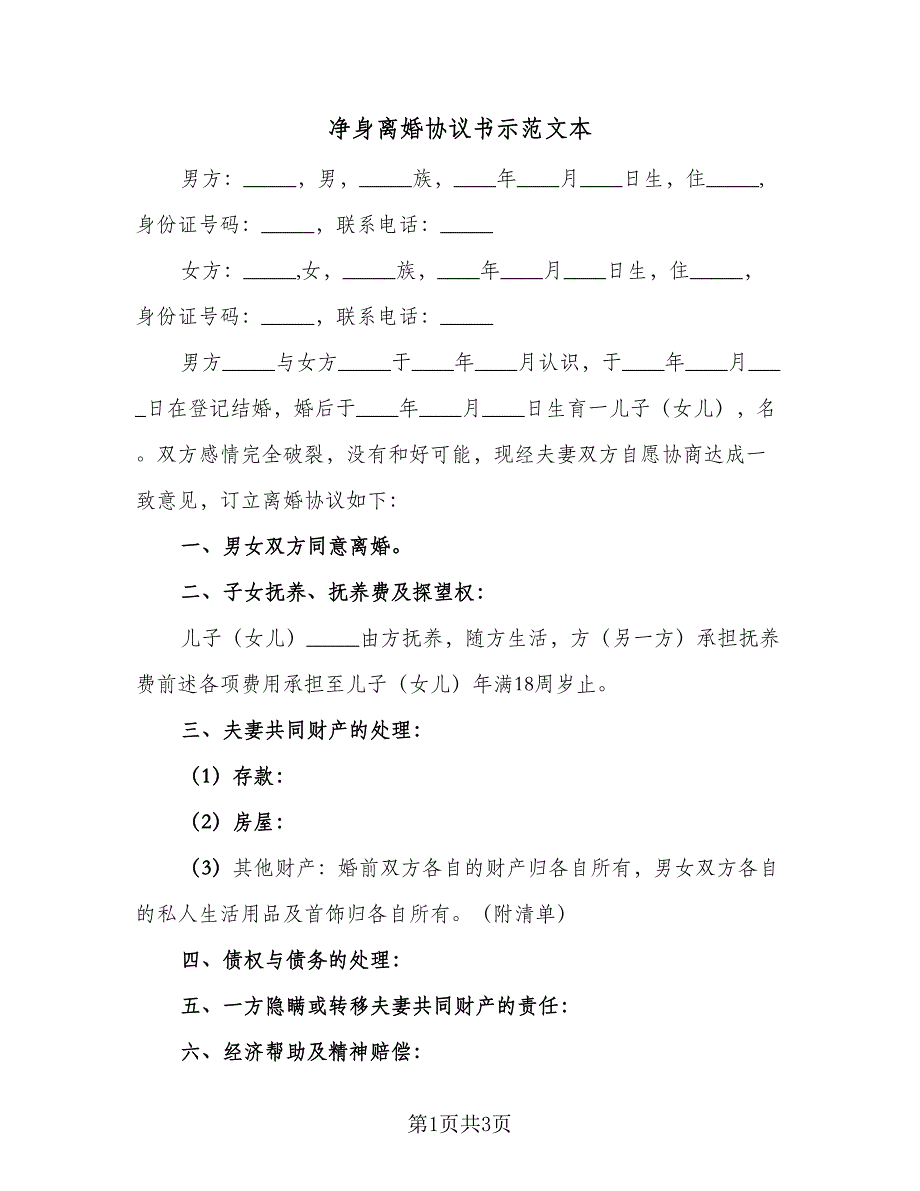 净身离婚协议书示范文本
男方：_____，男，_____族，____年____月____日生，住_____,
身份证号码：_____，联系电话：_____
女方：_____,女，_____族，____年____月____日生，住_____，
身份证号码：_____，联系电话：_____
男方_____与女方_____于____年____月认识，于____年____月___
_日在登记结婚，婚后于____年____月____日生育一儿子（女儿），名
。双方感情完全破裂，没有和好可能，现经夫妻双方自愿协商达成一
致意见，订立离婚协议如下：
一、男女双方同意离婚。
二、子女抚养、抚养费及探望权：
儿子（女儿）_____由方抚养，随方生活，方（另一方）承担抚养
费前述各项费用承担至儿子（女儿）年满18周岁止。
三、夫妻共同财产的处理：
（1）存款：
（2）房屋：
（3）其他财产：婚前双方各自的财产归各自所有，男女双方各自
的私人生活用品及首饰归各自所有。（附清单）
四、债权与债务的处理：
五、一方隐瞒或转移夫妻共同财产的责任：
六、经济帮助及精神赔偿：
第1页共3页